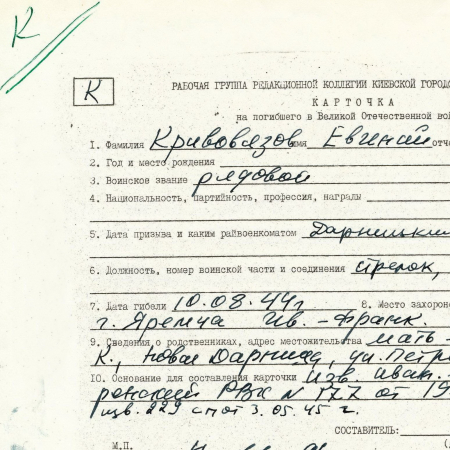 К
К
РАБОЧАЯ ГРУППА РЕДАКЦИОННОЙ КОЛЛЕГИИ КИЕВСКОЙ ГОРОДС
КАРТОЧКА
на погибшего в Великой Отечественной вой
1. Фамилия Кривовязов имя Евгений отче
2. Год и место рождения
3. Воинское звание рядовой
4. Национальность, партийность, профессия, награды
5. Дата призыва и каким райвоенкоматом Дарницким
6. Должность, номер воинской части и соединения стрелок,
7. Дата гибели 10.08.44г 8. Место захорон
г. Яремча Ив.-Франк.
9. Сведения о родственниках, адрес местожительства мать -
К., Новая Дарница, ул. Петр
10. Основание для составления карточки Изв. Иван.-
РВК № 177 от 19
229 от 3.05.45 г.
СОСТАВИТЕЛЬ:
М.П.